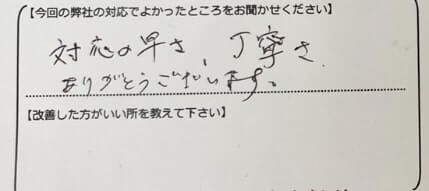 【今回の弊社の対応でよかったところをお聞かせください】
対応の早さ、丁寧さ
ありがとうございます。
【改善した方がいい所を教えて下さい】